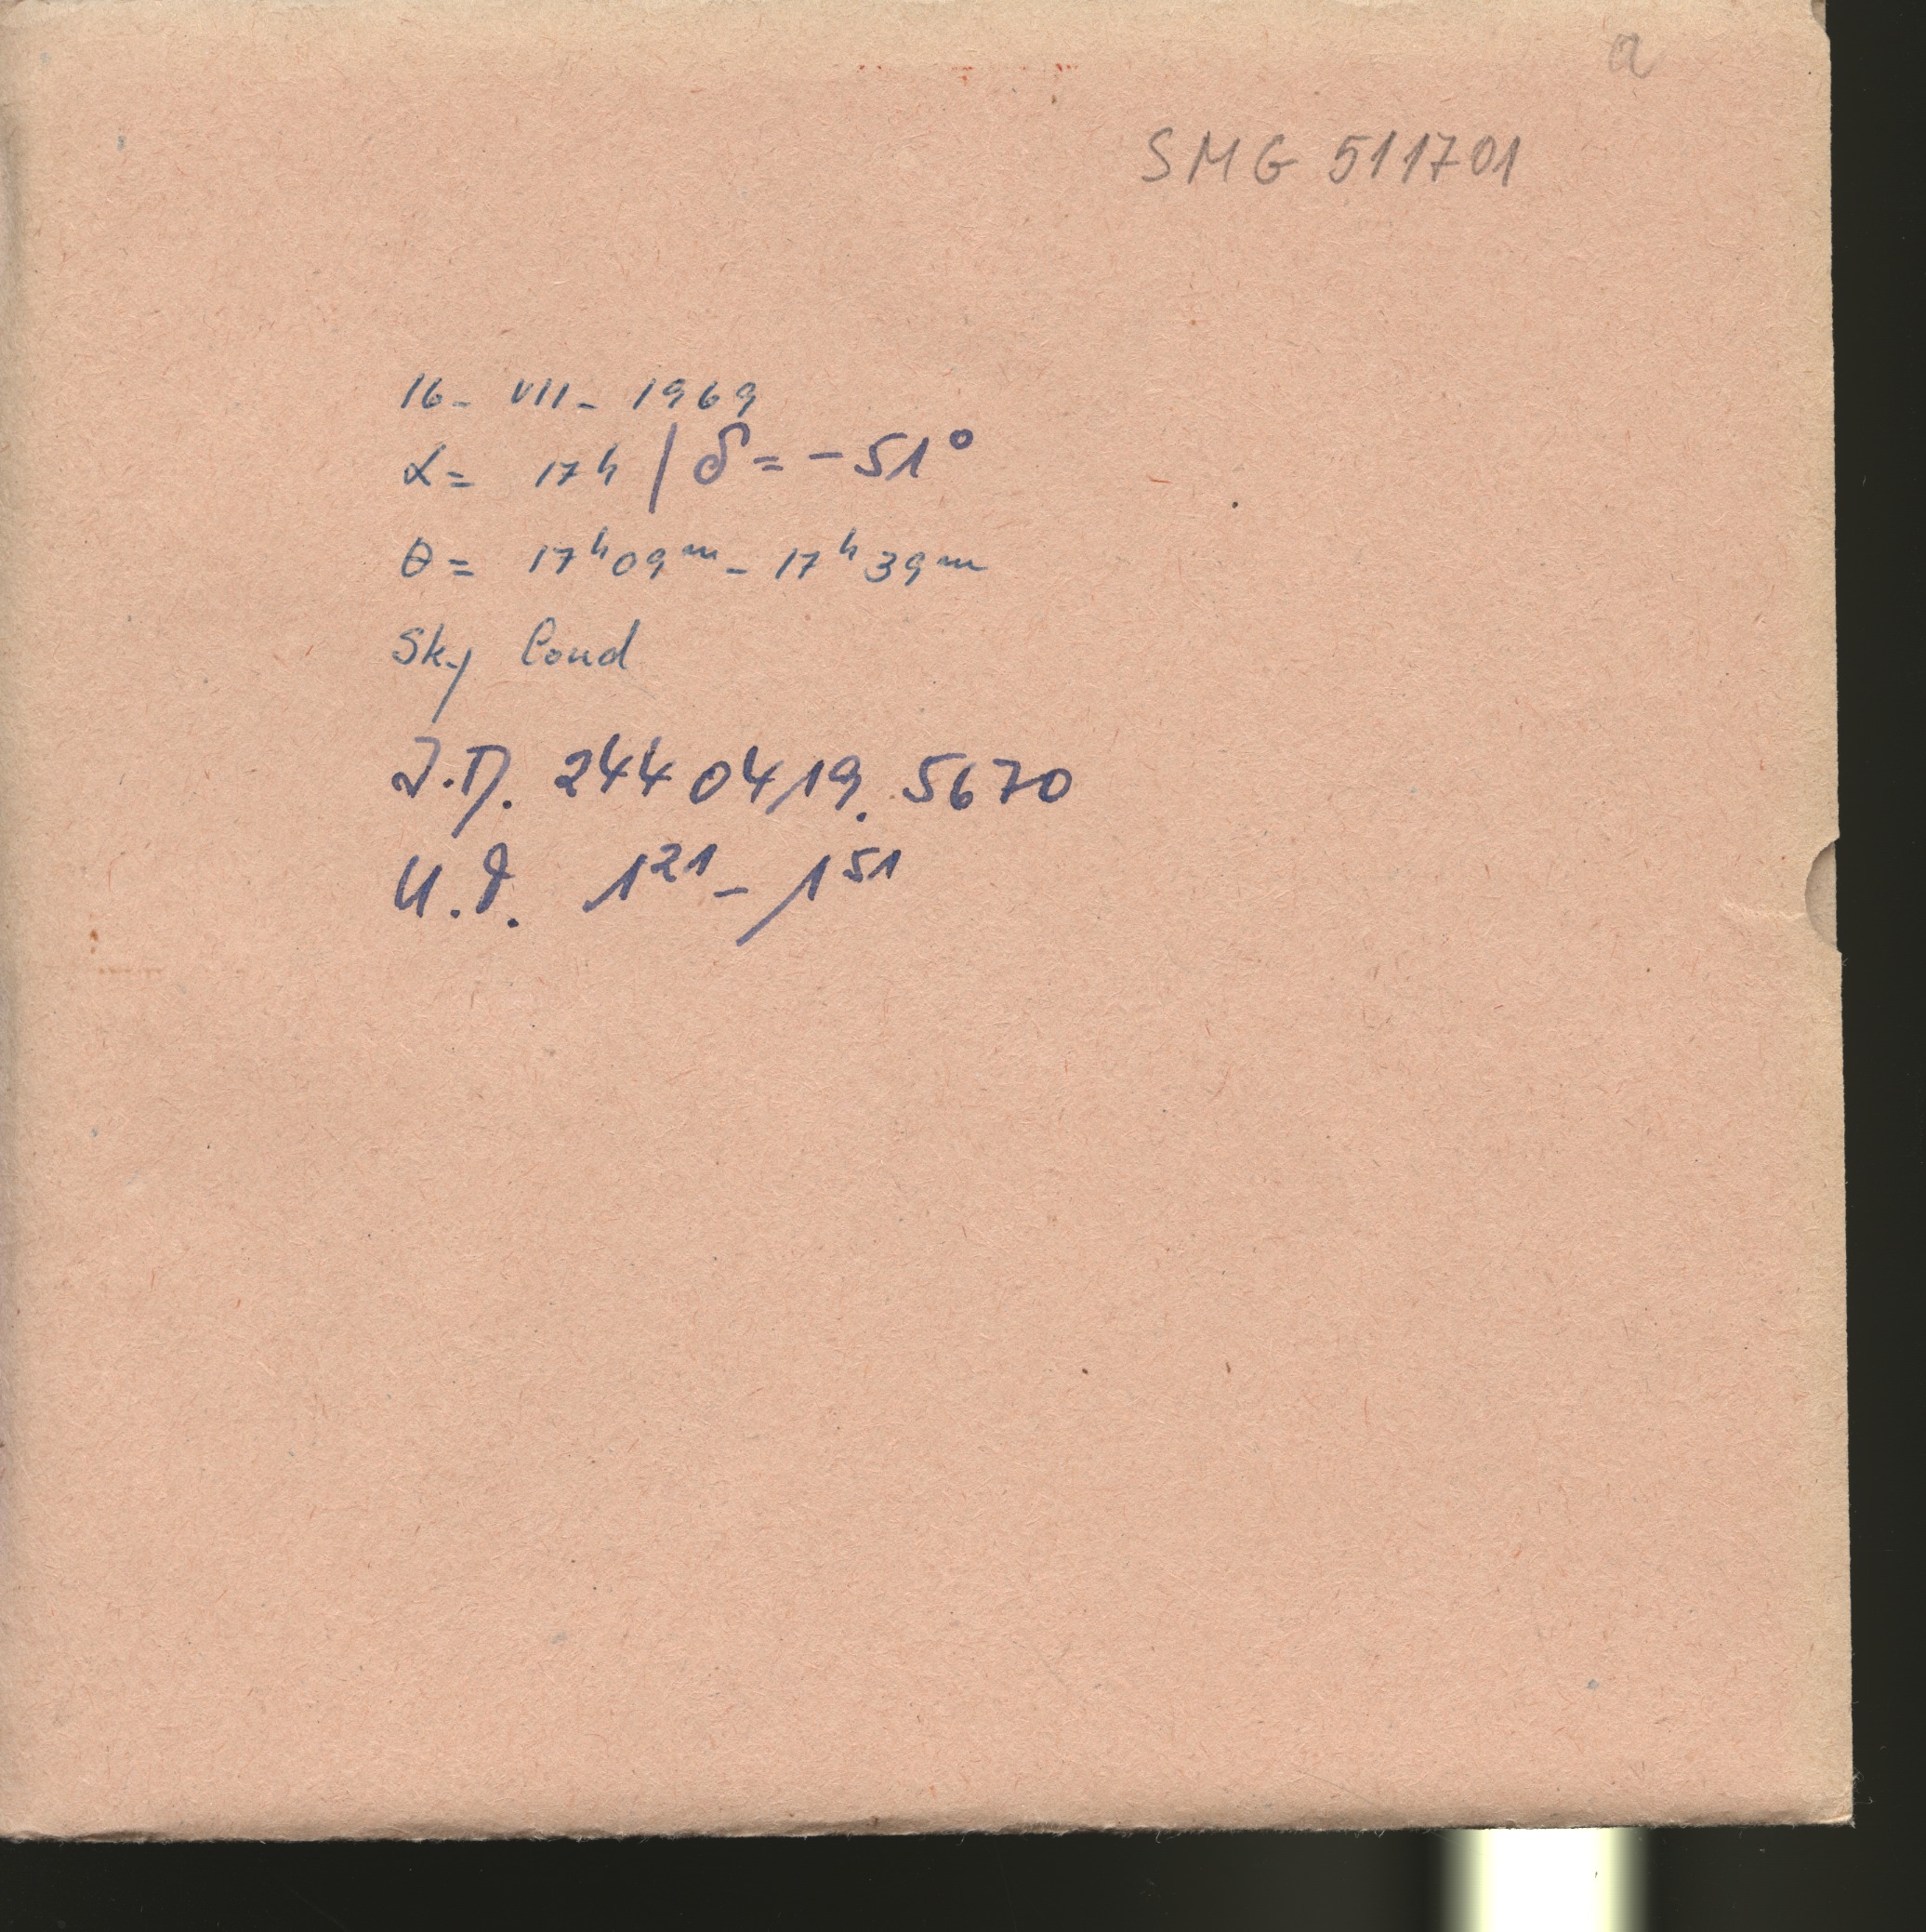 a
SMG 511701
16- VII- 1969
α= 17h / δ= -51°
θ= 17ʰ09ᵐ- 17ʰ39ᵐ
Sky Cond
J.D. 2440419.5670
U.T. 1²¹- 1⁵¹